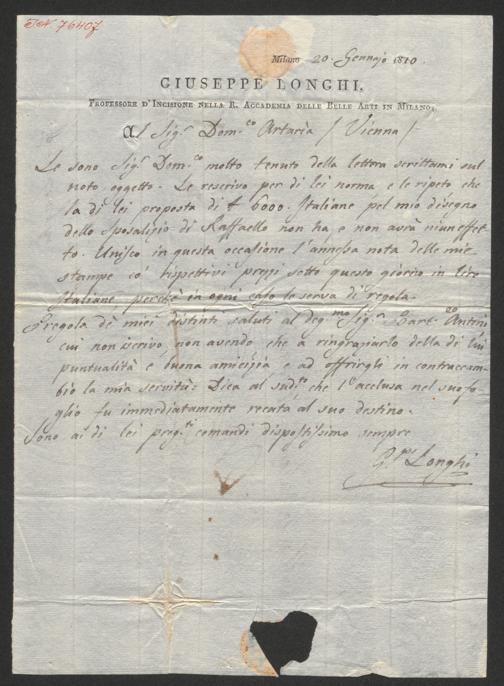 I.N. 76407
Milano 20. Gennajo 1810.
GIUSEPPE LONGHI,
PROFESSORE D'INCISIONE NELLA R. ACCADEMIA DELLE BELLE ARTI IN MILANO,
Al Sigr. Domco. Artaria / Vienna /
Le sono Sigr. Domco. molto tenuto della lettera scrittami sul
noto oggetto. Le rescrivo per di lei norma, e le ripeto che
la di lei proposta di 6000. Italiane pel mio disegno
dello Sposalizio di Raffaello non ha e non avrà niun effet-
to. Unisco in questa occasione l'annessa nota delle mie
stampe co' rispettivi prezzi sotto questo giorno in lire
Italiane perchè in ogni caso le serva di regola.
Pregola de' miei distinti saluti al degmo. Sigr. Antini
cui non iscrivo, non avendo che a ringraziarlo della di lui
puntualità e buona amicizia, e ad offrirgli in contraccam-
bio la mia servitù: Dica al sudto. che l'acclusa nel suo fo-
glio fu immediatamente recata al suo destino.
Sono ai di lei preg.ti comandi dispostissimo sempre
G.pe Longhi